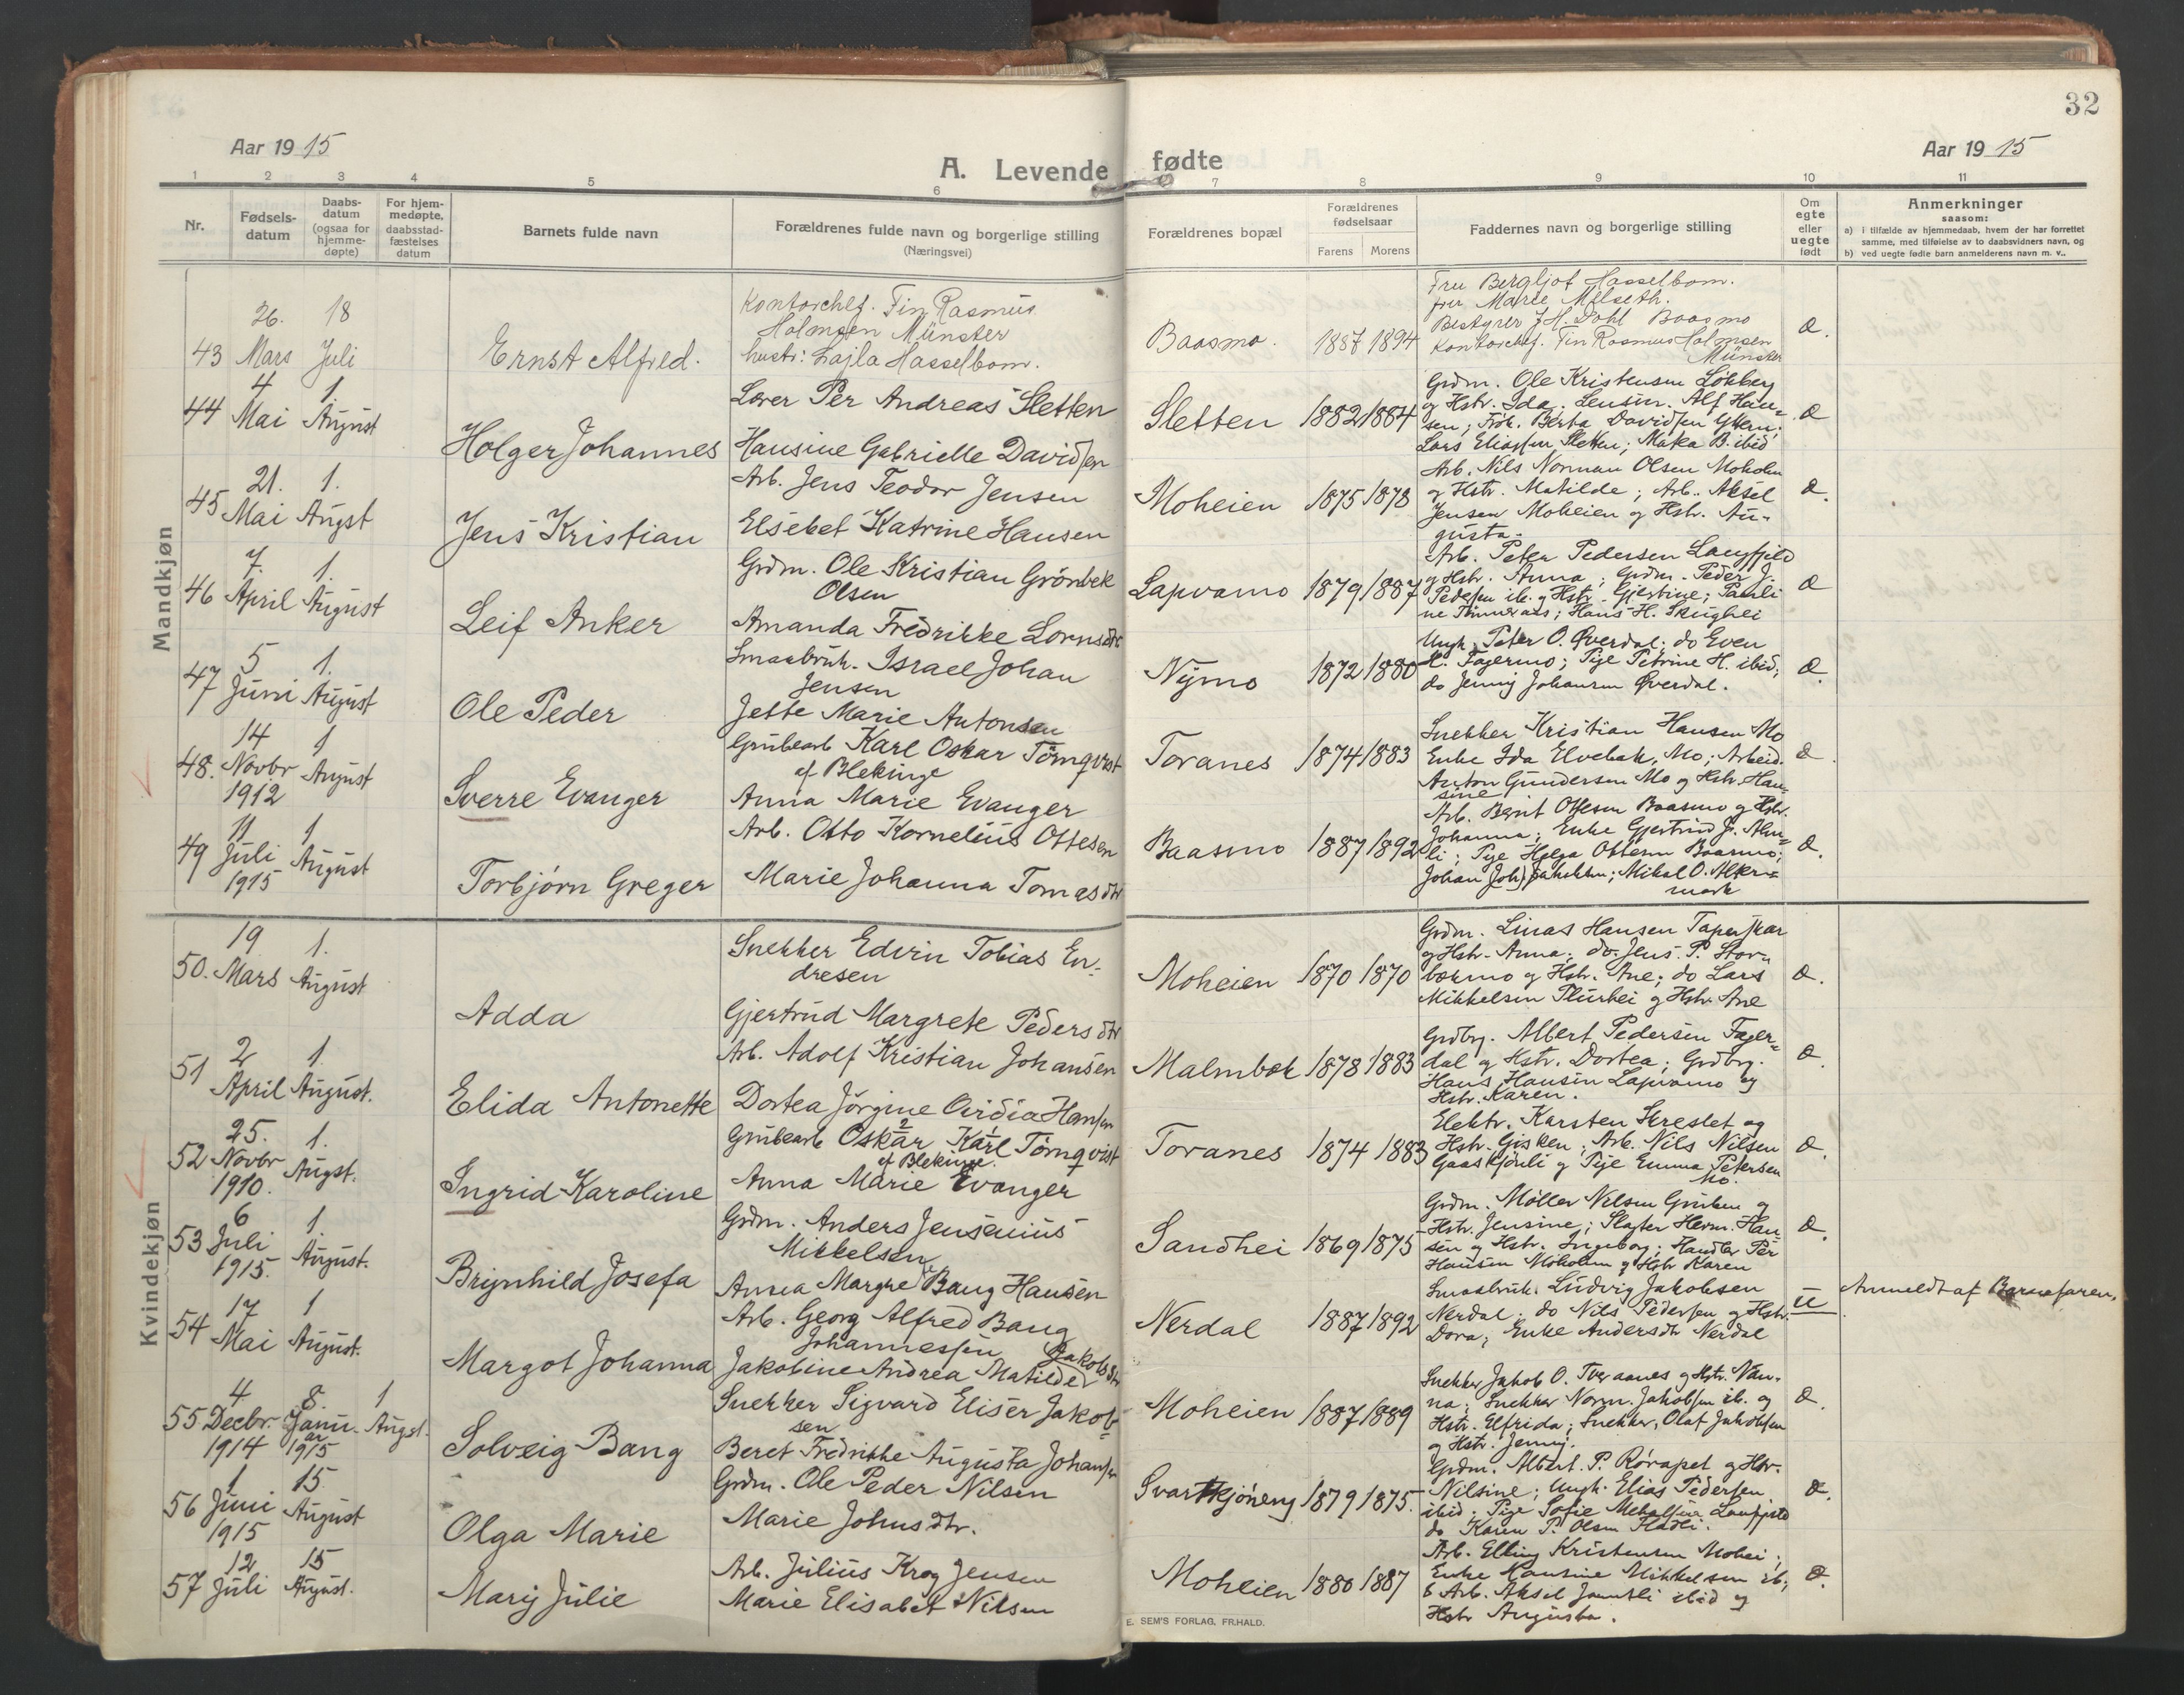 32
Aar 1915
Aar 1915
A. Levende fødte
1 2 3 4 5 6 7 8 9 10 11
Nr.
Fødsels-
datum
Daabs-
datum
(ogsaa for
hjemme-
døpte)
For hjem-
medøpte,
daabsstad-
fæstelses
datum
Barnets fulde navn
Forældrenes fulde navn og borgerlige stilling
(Næringsvei)
Forældrenes bopæl
Forældrenes
fødselsaar
Farens Morens
Faddernes navn og borgerlige stilling
Om
egte
eller
uegte
født
Anmerkninger
saasom:
a) i tilfælde av hjemmedaab, hvem der har forrettet
samme, med tilføielse av to daabsvidners navn, og
b) ved uegte fødte barn anmelderens navn m. v..
Mandkjøn
43 26. Mars 18 Juli
Ernst Alfred.
Kontorchef. Finn Rasmus
Holmsen Münster
hustr: Lajla Hasselbom.
Baasmo. 1887 1894
Fru Bergljot Hasselbom.
fru Marie Milseth.
Bestyrer J. H. Dahl Baasmo
Kontorchef. Fin Rasmus Holmsen
Münster
Æ.
44 4 Mai 1. August
Holger Johannes
Lærer Per Andreas Sletten
Hansine Gabrielle Davidsen
Sletten 1882 1884
Grdm. Ole Kristensen Løkberg
og Hstr. Ida; Lensm. Alf Han-
sen; Frk. Berta Davidsen
Lars Eliassen Sletten; B. ibid
Æ
45 21. Mai 1. Augst
Jens Kristian
Arb. Jens Teodor Jensen
Elsebet Katrine Hansen
Moheien 1875 1878
Arb. Nils Norman Olsen Moholm
og Hstr. Matilde; Arb. Aksel
Jensen Moheien og Hstr. Au-
gusta.
Æ.
46 7. April 1. August
Leif Anker
Grdm. Ole Kristian Grönbek
Olsen
Amanda Fredrikke Lornsdtr
Lapvamo 1879 1887
Arb. Peter Pedersen Langfjeld
og Hstr. Anna; Grdm. Peder J.
Pedersen ib. og Hstr. Gjertine; Pauli
ne Tømmeraas; Hans H. Skughei
Æ
47 5 Juni 1. August
Ole Peder
Smaabruk. Israel Johan
Jensen
Jette Marie Antonsen
Nymo 1872 1880
Ungk. Peter O. Øverdal; do Even
H. Fagermo; Pige Petrine H. ibid;
do Jenny Johansen Øverdal.
Æ.
48. 14 Novbr 1912 1 August
Sverre Evanger
Grubearb Karl Oskar Törnqvist
af Blekinge
Anna Marie Evanger
Toranes 1874 1883
Snekker Kristian Hansen Mo
Enke Ida Elvebak, Mo; Arbeid.
Anton Gundersen Mo og Hstr. Han-
sine
Æ.
49 11 Juli 1915 1 August
Torbjørn Greger
Arb. Otto Kornelius Ottesen
Marie Johanna Tomasdtr
Baasmo 1887 1892
Arb. Bernt Ottesen Baasmo og Hstr.
Johanna; Enke Gjertrud J. Alm-
li; Pige Helga Ottesen Baasmo;
Johan Joh. Jakobsen; Mikal O. Alter-
mark
Æ.
Kvindekjøn
50. 19 Mars 1. August
Adda
Snekker Edvin Tobias En-
dresen
Gjertrud Margrete Pedersdtr
Moheien 1870 1870
Grdm. Linas Hansen Taperskar
og Hstr. Anna; do. Jens P. Stor-
bækmo og Hstr. Ane; do Lars
Mikkelsen Plurhei og Hstr. Ane
Æ.
51 2 April 1. August.
Elida Antonette
Arb. Adolf Kristian Johansen
Dortea Jörgine Ovidia Hansen
Malmbæk 1878 1883
Grdbrg. Albert Pedersen Fager-
dal og Hstr. Dortea; Grdbrg.
Hans Hansen Lapvamo og
Hstr. Karen.
Æ.
52 25. Novbr 1910. 1. Augst.
Ingrid Karoline
Grubearb Oskar Karl Törnqvist
af Blekinge.
Anna Marie Evanger
Toranes 1874 1883
Elektr. Karsten Skreslet og
Hstr. Gisken; Arb. Nils Nilsen
Gaaskjönli og Pige Emma Petersen
Mo.
Æ.
53 6 Juli 1915. 1. August.
Brynhild Josefa
Grdm. Anders Jensenius
Mikkelsen
Anna Margre Bang Hansen
Sandhei 1869 1875
Grdm. Møller Nilsen Gruben og
Hstr. Jensine; Slagter Herm. Han-
sen og Hstr. Ingeborg; Handler Per
Hansen Moholm og Hstr Karen
Æ.
54 17 Mai 1 August.
Margot Johanna
Arb. Georg Alfred Bang
Johannessen
Jakobine Andrea Matilde Jakobsdtr
Nerdal 1887 1892
Smaabruk. Ludvig Jakobsen
Nerdal; do Nils Pedersen og Hstr.
Dora; Enke Andersdtr Nerdal
U
Anmeldt af Barnefaren.
55 4 Decbr. 1914 8. Januar 1915 1 Augst.
Solveig Bang
Snekker Sigvard Eliser Jakob-
sen
Beret Fredrikke Augusta Johansen
Moheien 1887 1889
Snekker Jakob O. Tveraanes og Hstr. Nan-
na; Snekker Norm. Jakobsen ib. og
Hstr. Elfrida; Snekker, Olaf Jakobsen
og Hstr. Jenny.
Æ.
56 1 Juni 1915 15. August
Olga Marie
Grdm. Ole Peder Nilsen
Marie Johnsdtr.
Svartkjöneng 1879 1875.
Grdm. Albert P. Rørapet og Hstr.
Nilsine; Ungk. Elias Pedersen
ibid; Pige Sofie Langfjeld
do Karen P. Olsen
Æ.
57 12 Juli 15 August.
Mary Julie
Arb. Julius Krog Jensen
Marie Elisabet Nilsen
Moheien 1880 1887
Arb. Elling Kristensen Mohei;
Enke Hansine Mikkelsen ib;
Arb. Aksel Jamtli ibid og
Hstr Augusta.
Æ.
E. SEM'S FORLAG, FR.HALD.